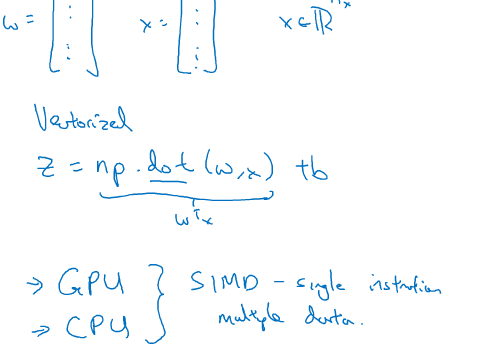 w = [⋮] x = [⋮] x ∈ ℝⁿˣ
Vectorized
z = np.dot(w,x) + b
wᵀx
→ GPU } SIMD - single instruction
→ CPU } multiple data.